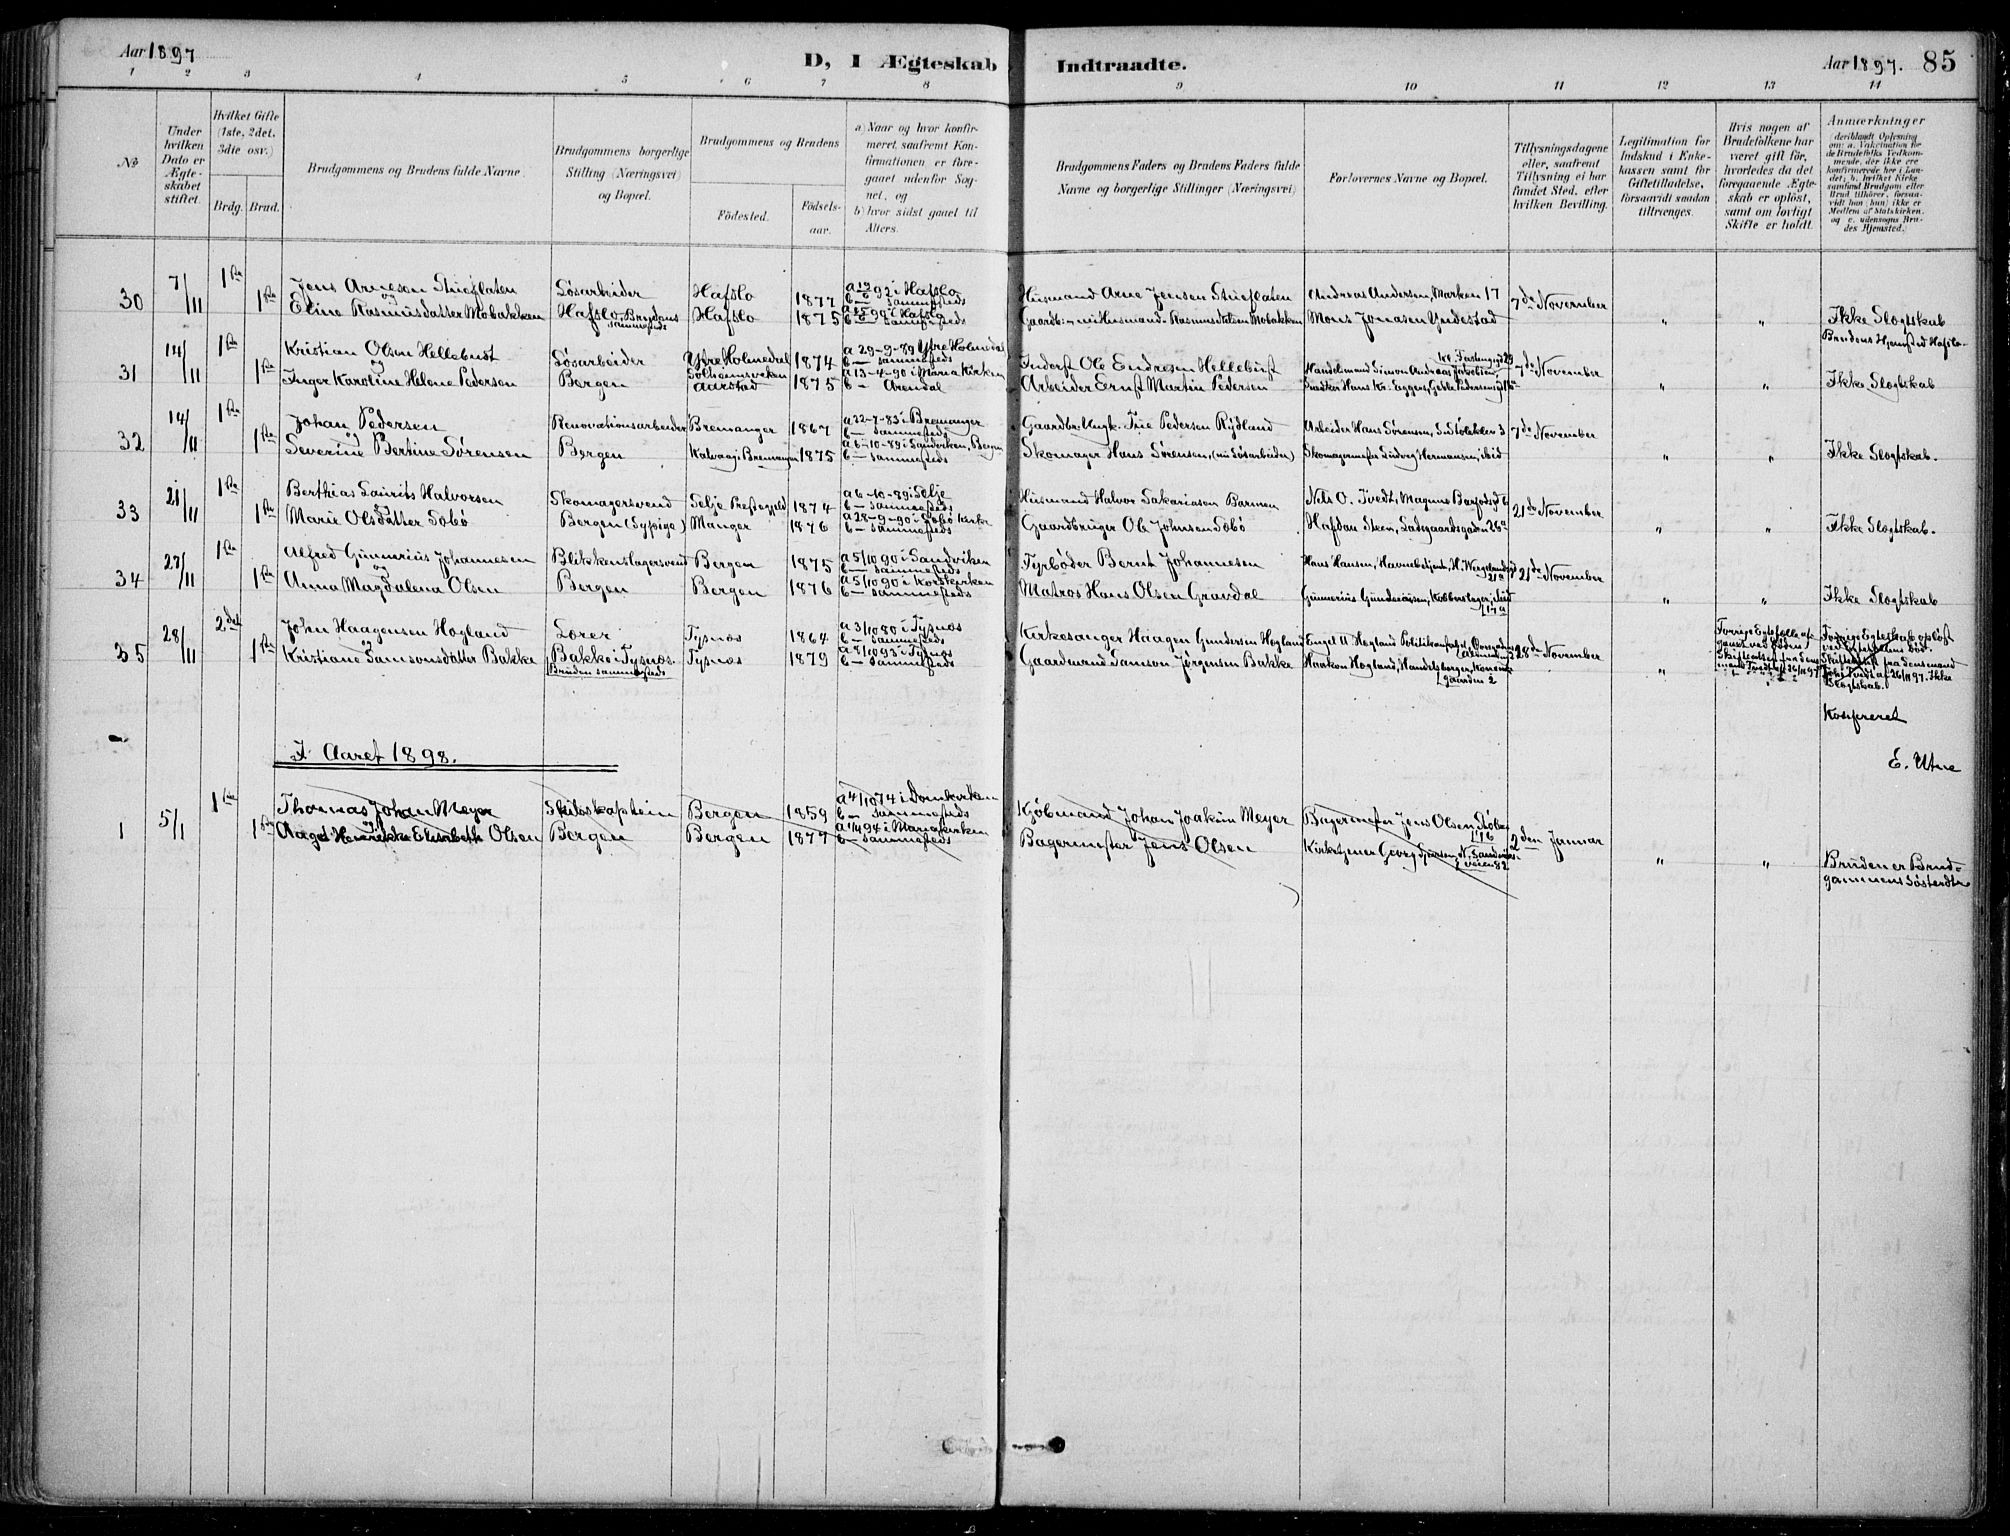 Aar 1897
D, I Ægteskab Indtraadte.
Aar 1897. 85
1 2 3 4 5 6 7 8 9 10 11 12 13 14
№
Under hvilken Dato er Ægteskabet stiftet.
Hvilket Gifte (1ste, 2det, 3die osv.)
Brdg. Brud.
Brudgommens og Brudens fulde Navne.
Brudgommens borgerlige Stilling (Næringsvei) og Bopæl.
Brudgommens og Brudens
Fødested.
Fødselsaar.
a) Naar og hvor konfirmeret, saafremt Konfirmationen er foregaaet udenfor Sognet, og
b) hvor sidst gaaet til Alters.
Brudgommens Faders og Brudens Faders fulde Navne og borgerlige Stillinger (Næringsvei)
Forlovernes Navne og Bopæl.
Tillysningsdagene eller, saafremt Tillysning ei har fundet Sted, efter hvilken Bevilling.
Legitimation for Indskud i Enkekassen samt for Giftetilladelse, forsaavidt saadan tiltrænges.
Hvis nogen af Brudefolkene har været gift før, hvorledes da det foregaaende Ægteskab er opløst, samt om lovligt Skifte er holdt.
Anmærkninger (deriblandt Oplysning om: a. Vakcination for de Brudefolks Vedkommende, der ikke ere konfirmerede her i Landet; b. hvilket Kirkesamfund Brudgom eller Brud tilhører, forsaavidt han (hun) ikke er Medlem af Statskirken, og c. udensogns Brudes Hjemsted.)
30 7/11 1ste Jens Arneson Løsarbeider Hafslo 1877 Husmand Arne Jensen Andreas Andersen, Marken 17 7de November
1ste og Eline Rasmusdatter Mobakken Hafslo, Brudens sammesteds Hafslo 1875 b - sammesteds Rasmus Mobakken Mons Jonasen Yndestad " " Ikke Slegtskab
Brudens Hjemsted Hafslo.
31 14/11 1ste Kristian Olsen Hellebust Løsarbeider Ytre Holmedal 1874 a 29-9-89 Ytre Holmedal b - sammesteds Inderst Ole Endresen Hellebust Handelsmand Simon Andreas 7de November
1ste og Inger Karoline Helene Pedersen Bergen Solheimsviken Aarstad 1875 a 13-4-90 i Maria Kirken b - Arendal Arbeider Ernst Martin Pedersen " " Ikke Slegtskab
32 14/11 1ste Johan Pedersen Renovationsarbeider Bremanger 1867 a 22-7-83 i Bremanger b - sammesteds Pedersen Rydland Arbeider Hans Sørensen, 7de November
1ste og Severine Bertine Sørensen Bergen Kalvaag i Bremanger 1875 a 6-10-89 i Sandviken, Bergen b - sammesteds Skomager Hans Sørensen, (nu Løsarbeider) Skomagermester Ludvig Hermansen, ibid " " Ikke Slegtskab.
33 21/11 1ste Berthias Laurits Halvorsen Skomagersvend Selje Prestegjeld 1874 a 6-10-89 i Selje b - sammesteds Husmand Halvor Sakariasen Barmen Nils O. Tvedt, Magnus Barfodsgd 6 21de November
1ste og Marie Olsdatter Sæbø Bergen (Sypige) Manger 1876 a 28-9-90 i Sæbø Kirke b - sammesteds Gaardbruger Ole Johnsen Sæbø Halfdan Steen, Ladegaardsgaden 26a " " Ikke Slegtskab.
34 27/11 1ste Alfred Gunnerius Johannesen Blikkenslagersvend Bergen 1875 a 5/10 90 i Sandviken b - sammesteds Fyrbøder Bernt Johannesen Hans Hansen, Havnebetjent, H. Wergelandsgd 21a 21de November
1ste og Anna Magdalena Olsen Bergen Bergen 1876 a 5/10 90 i Korskirken b - sammesteds Matros Hans Olsen Gravdal Gunnerius Gundersen, Kobberslager, 17a " " Ikke Slegtskab
35 28/11 2det John Haagensen Hogland Lærer Tysnæs 1864 a 3/10 80 i Tysnæs b - sammesteds Kirkesanger Haagen Gundersen Hogland Engel H Hogland Politikonstabel, 28de November
1ste og Kristiane Samsonsdatter Bakke Bakke i Tysnæs. Bruden sammesteds Tysnæs 1879 a 8/10 93 i Tysnæs b - sammesteds Gaardmand Samson Jørgensen Bakke Haakon Hogland, Handelsborger, gaarden 2 " Forrige Egtefælle afgaaet ved Døden. Skifteattest fra Lensmand Tvedt af 26/11 97 Forrige Egteskab opløst ved Skifteattest fra Lensmand Tvedt af 26/11 97. Ikke Slegtskab.
Konfereret
E. Utne
I Aaret 1898.
1 5/1 1ste Thomas Johan Meyer Skibskaptein Bergen 1859 a 4/10 74 i Domkirken b - sammesteds Kjøbmand Johan Joakim Meyer Bagermester Jens Olsen, 16 2den Januar
1ste og Aagot Henrikke Elisabeth Olsen Bergen Bergen 1877 a 94 i Mariakirken b - sammesteds Bagermester Jens Olsen Kirketjener Georg N. Sandviksveien 82 " " Bruden er Brudgommens Søsterdtr